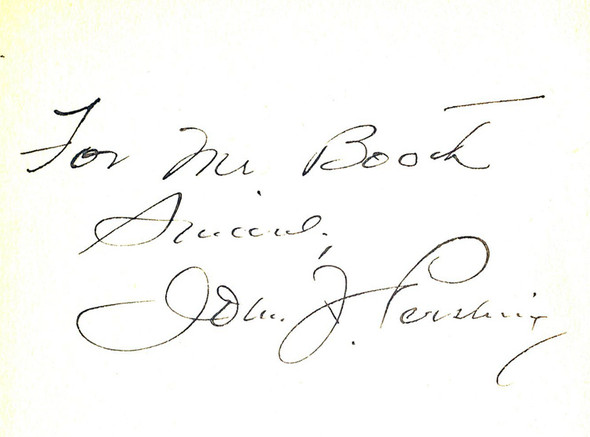 For Mr. Booth
Sincerely,
John J. Pershing